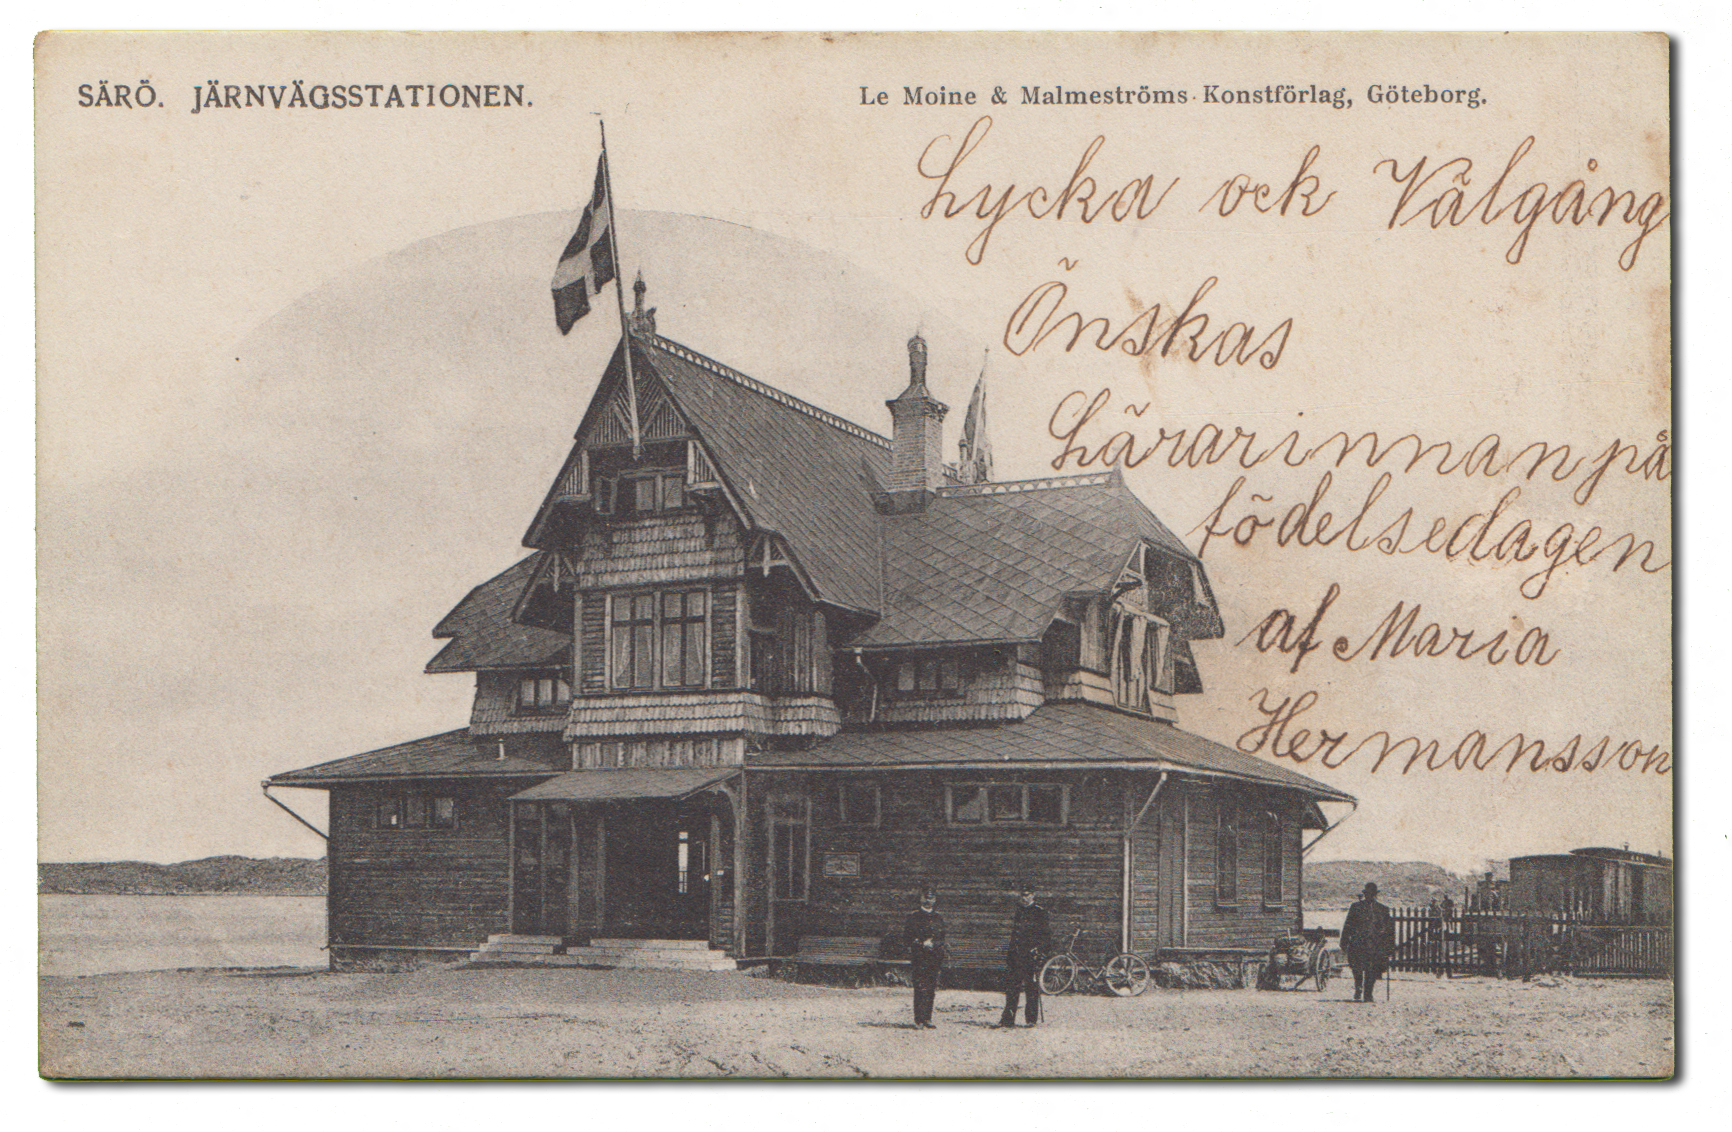 SÄRÖ. JÄRNVÄGSSTATIONEN.
Le Moine & Malmeströms Konstförlag, Göteborg.
Lycka ock Välgång
Önskas
Lärarinnan på
födelsedagen
af Maria
Hermansson